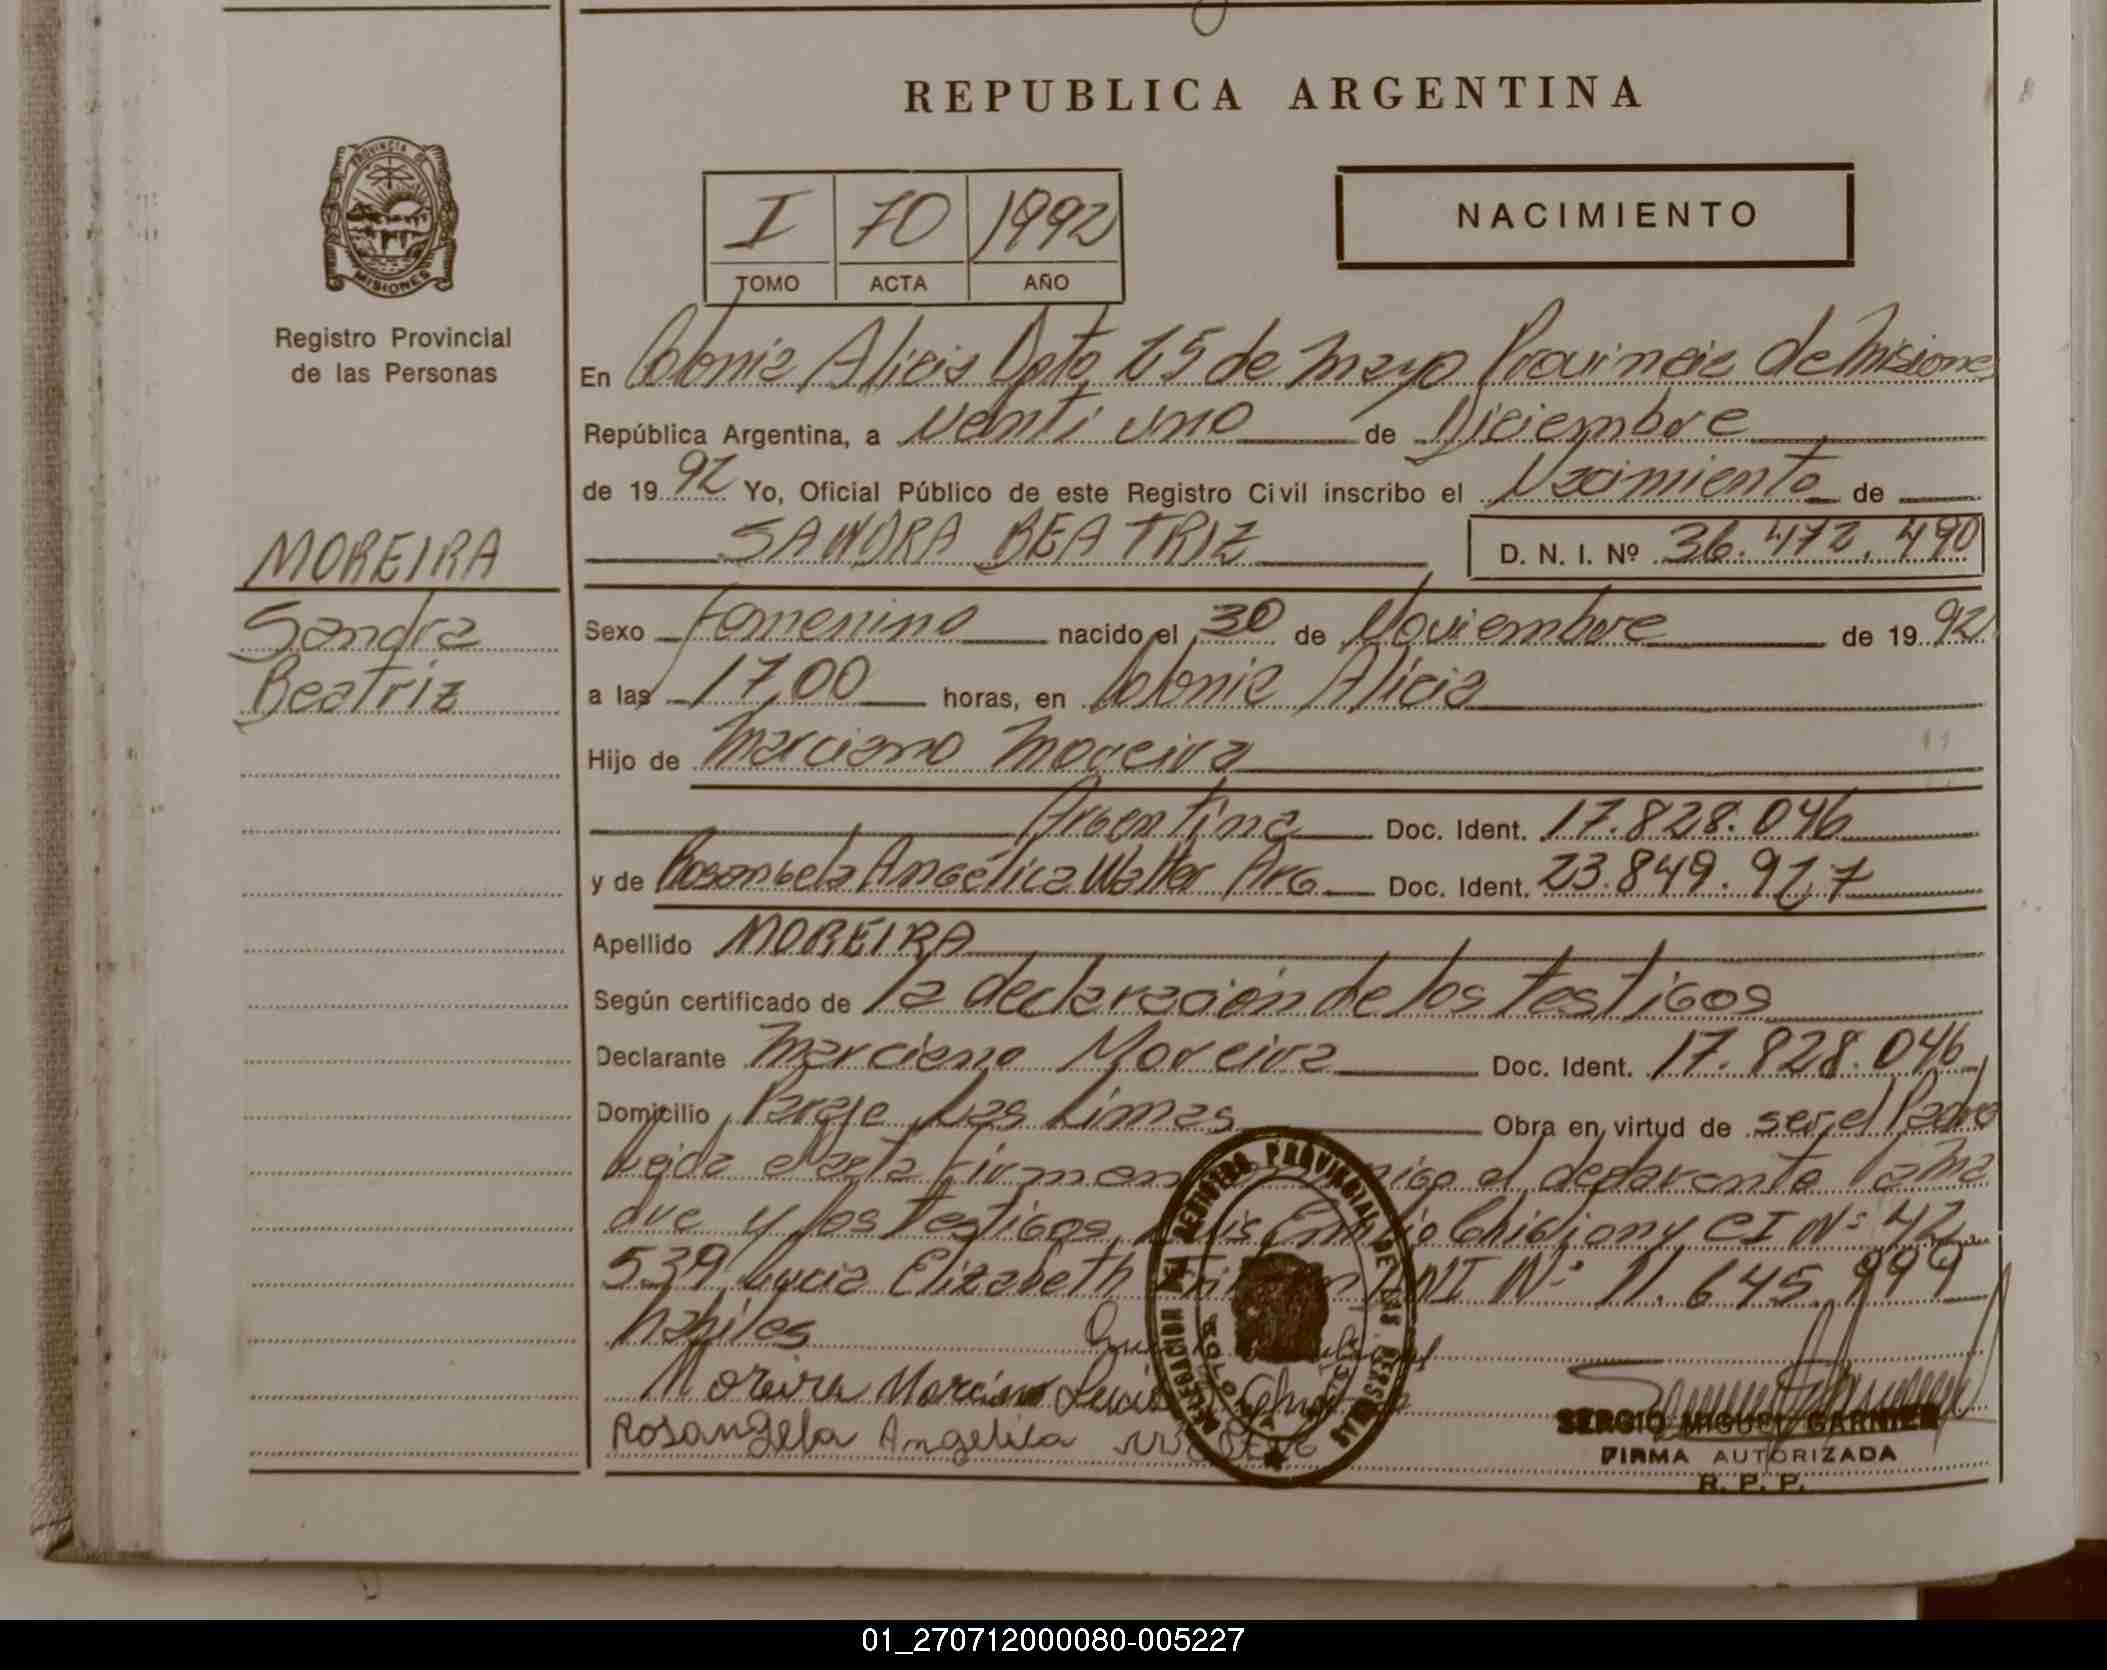 REPUBLICA ARGENTINA
PROVINCIA DE
MISIONES
Registro Provincial
de las Personas
I 70 1992
TOMO ACTA AÑO
NACIMIENTO
En Colonia Alicia Dpto 25 de Mayo Provincia de Misiones
República Argentina, a venti uno de Diciembre
de 1992 Yo, Oficial Público de este Registro Civil inscribo el Nacimiento de
SANDRA BEATRIZ D. N. I. Nº 36.472.490
MOREIRA
Sandra
Beatriz
Sexo Femenino nacido el 30 de Noviembre de 1992
a las 17,00 horas, en Colonia Alicia
Hijo de Marciano Moreira
Argentina Doc. Ident. 17.828.046
y de Rosangela Angélica Walter Arg Doc. Ident. 23.849.917
Apellido MOREIRA
Según certificado de la declaración de los testigos
Declarante Marciano Moreira Doc. Ident. 17.828.046
Domicilio Paraje Las Limas Obra en virtud de ser el Padre
Leida el acta firman el declarante la ma
dre y los testigos CI Nº 42
539 Lucia Elizabeth Nº 11.645.999
habiles
Moreira Marciano Lucia
Rosangela Angelica
DELEGACION DEL REGISTRO PROVINCIAL DE LAS PERSONAS
SERGIO MIGUEL GARNIER
FIRMA AUTORIZADA
R. P. P.
01_270712000080-005227